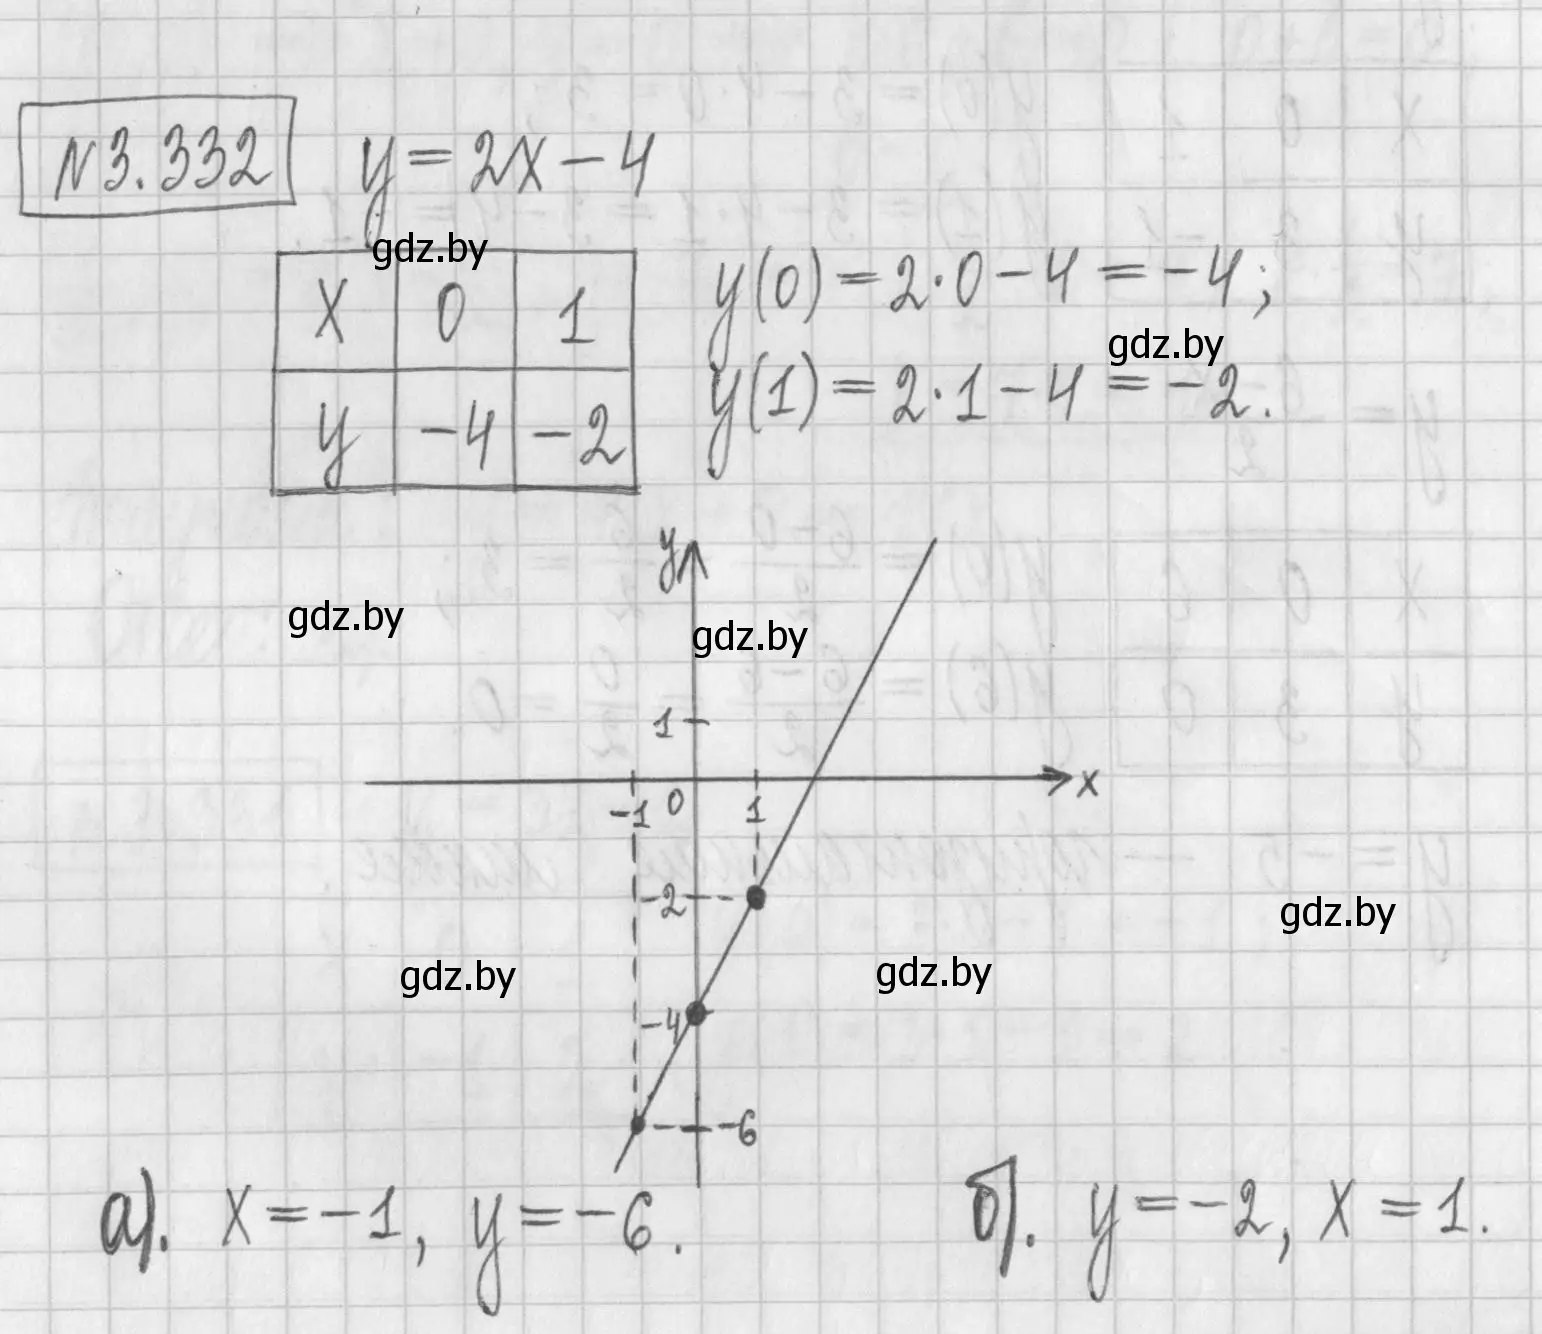 №3.332 y = 2x - 4
gdz.by
x 0 1
y -4 -2
y(0) = 2·0 - 4 = -4;
gdz.by
y(1) = 2·1 - 4 = -2.
y
gdz.by
gdz.by
1
-1 0 1 x
-2
gdz.by
gdz.by
gdz.by
-4
-6
а). x = -1, y = -6.
б). y = -2, x = 1.